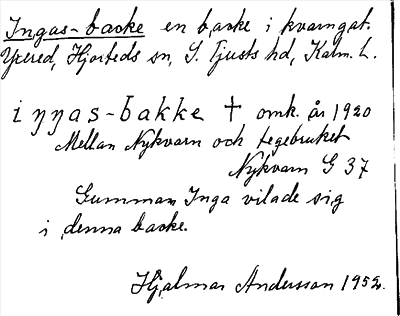 Ingas-backe en backe i kvarngat.
Ypered, Hjorteds sn, S. Tjusts hd, Kalm. L.
iŋŋas-bakke † omk. år 1920
Mellan Nykvarn och tegebruket
Nykvarn G 37
Gumman Inga vilade sig
i denna backe.
Hjalmar Andersson 1952.